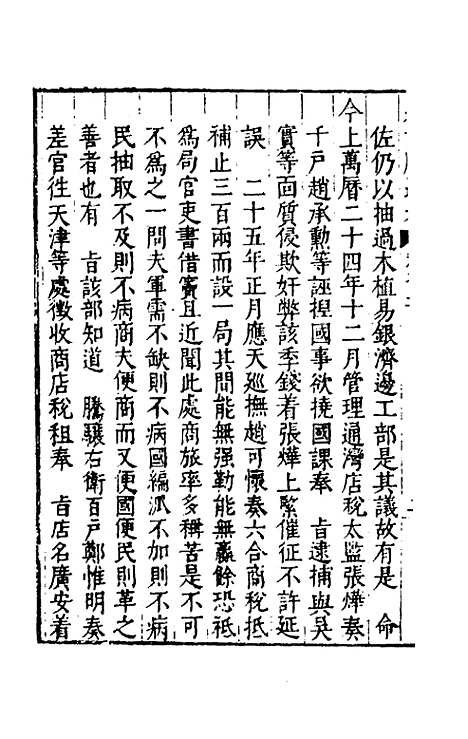 佐仍以抽過木植易銀濟邊工部是其議故有是　命
今上萬曆二十四年十二月管理通灣店稅太監張燁奏
千戶趙承勳等誣揑國事欲撓國課奉　旨逮捕與吳
實等面質侵欺奸弊該季錢着張燁上緊催征不許延
誤　二十五年正月應天巡撫趙可懷奏六合商稅抵
補止三百兩而設一局其間能無强勤能無羨餘恐祗
爲局官吏書借竇且近聞此處商旅率多稱苦是不可
不爲之一問夫軍需不缺則不病國編派不加則不病
民抽取不及則不病商夫便商而又便國便民則革之
善者也有　旨該部知道　騰驤右衛百戶鄭惟明奏
差官往天津等處徵收商店稅租奉　旨店名廣安着